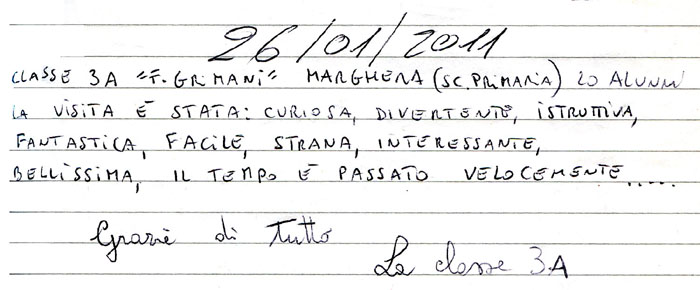 26/01/2011
CLASSE 3A "F. GRIMANI" MARGHERA (SC. PRIMARIA) 20 ALUNNI
LA VISITA È STATA: CURIOSA, DIVERTENTE, ISTRUTTIVA,
FANTASTICA, FACILE, STRANA, INTERESSANTE,
BELLISSIMA, IL TEMPO È PASSATO VELOCEMENTE.....
Grazie di tutto
La classe 3A